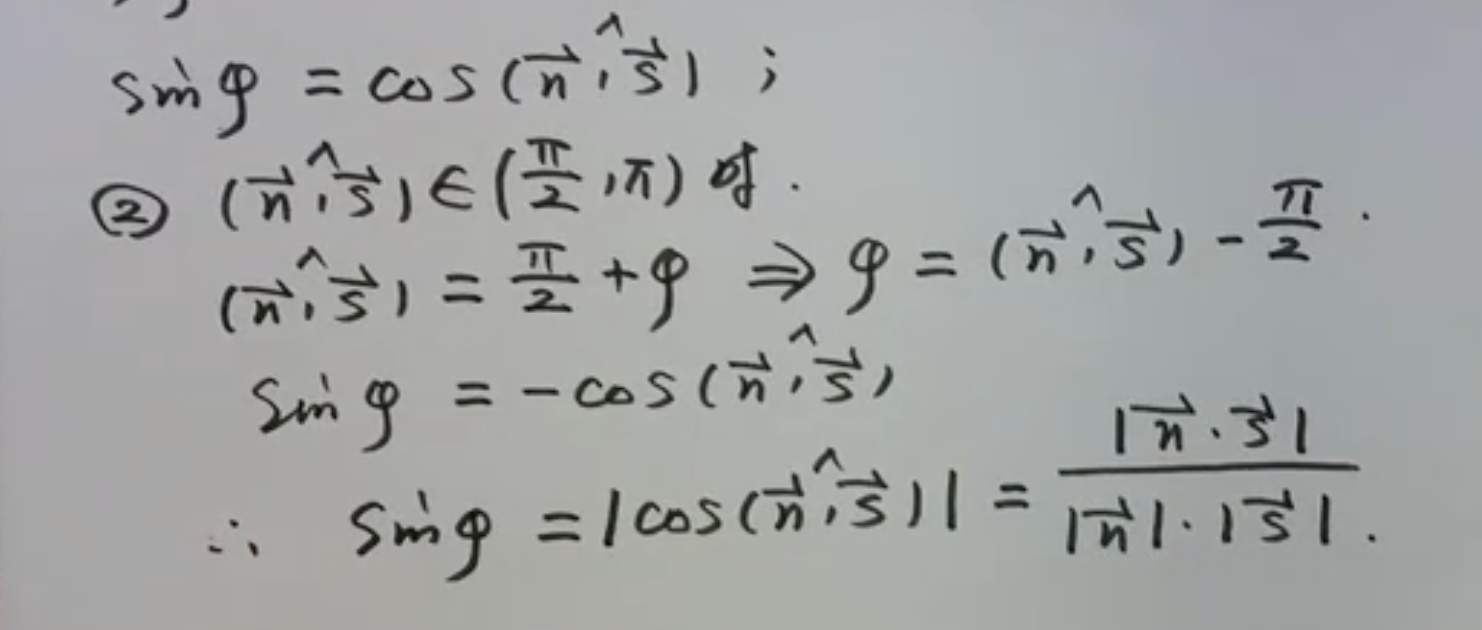 sinφ = cos(n⃗,^s⃗) ;
② (n⃗,^s⃗) ∈ (π/2, π) 时.
(n⃗,^s⃗) = π/2 + φ ⇒ φ = (n⃗,^s⃗) - π/2.
sinφ = -cos(n⃗,^s⃗)
∴ sinφ = |cos(n⃗,^s⃗)| = |n⃗·s⃗| / |n⃗|·|s⃗|.